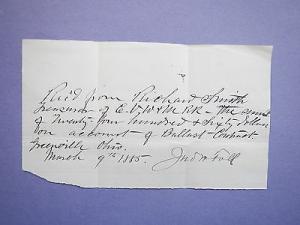 Rec'd from Richard Smith
Treasurer of C. V. W & M RR - the sum
of Twenty four hundred & Sixty dollars
on account of Ballast Contract.
Greenville Ohio.
March 9th 1885.
Jno M